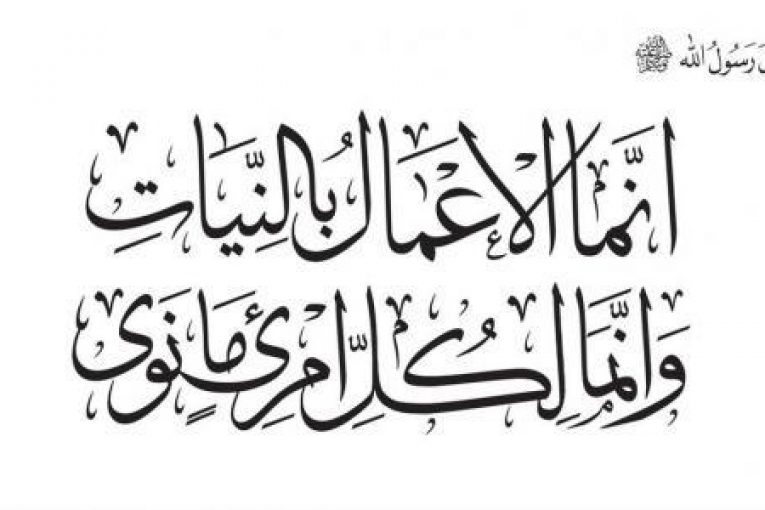 رَسُولُ الله ﷺ
انَّمَا الاعْمَالُ بالنِّيَاتِ
وَانَّمَا لِكُلِّ امْرِئٍ مَا نَوَى